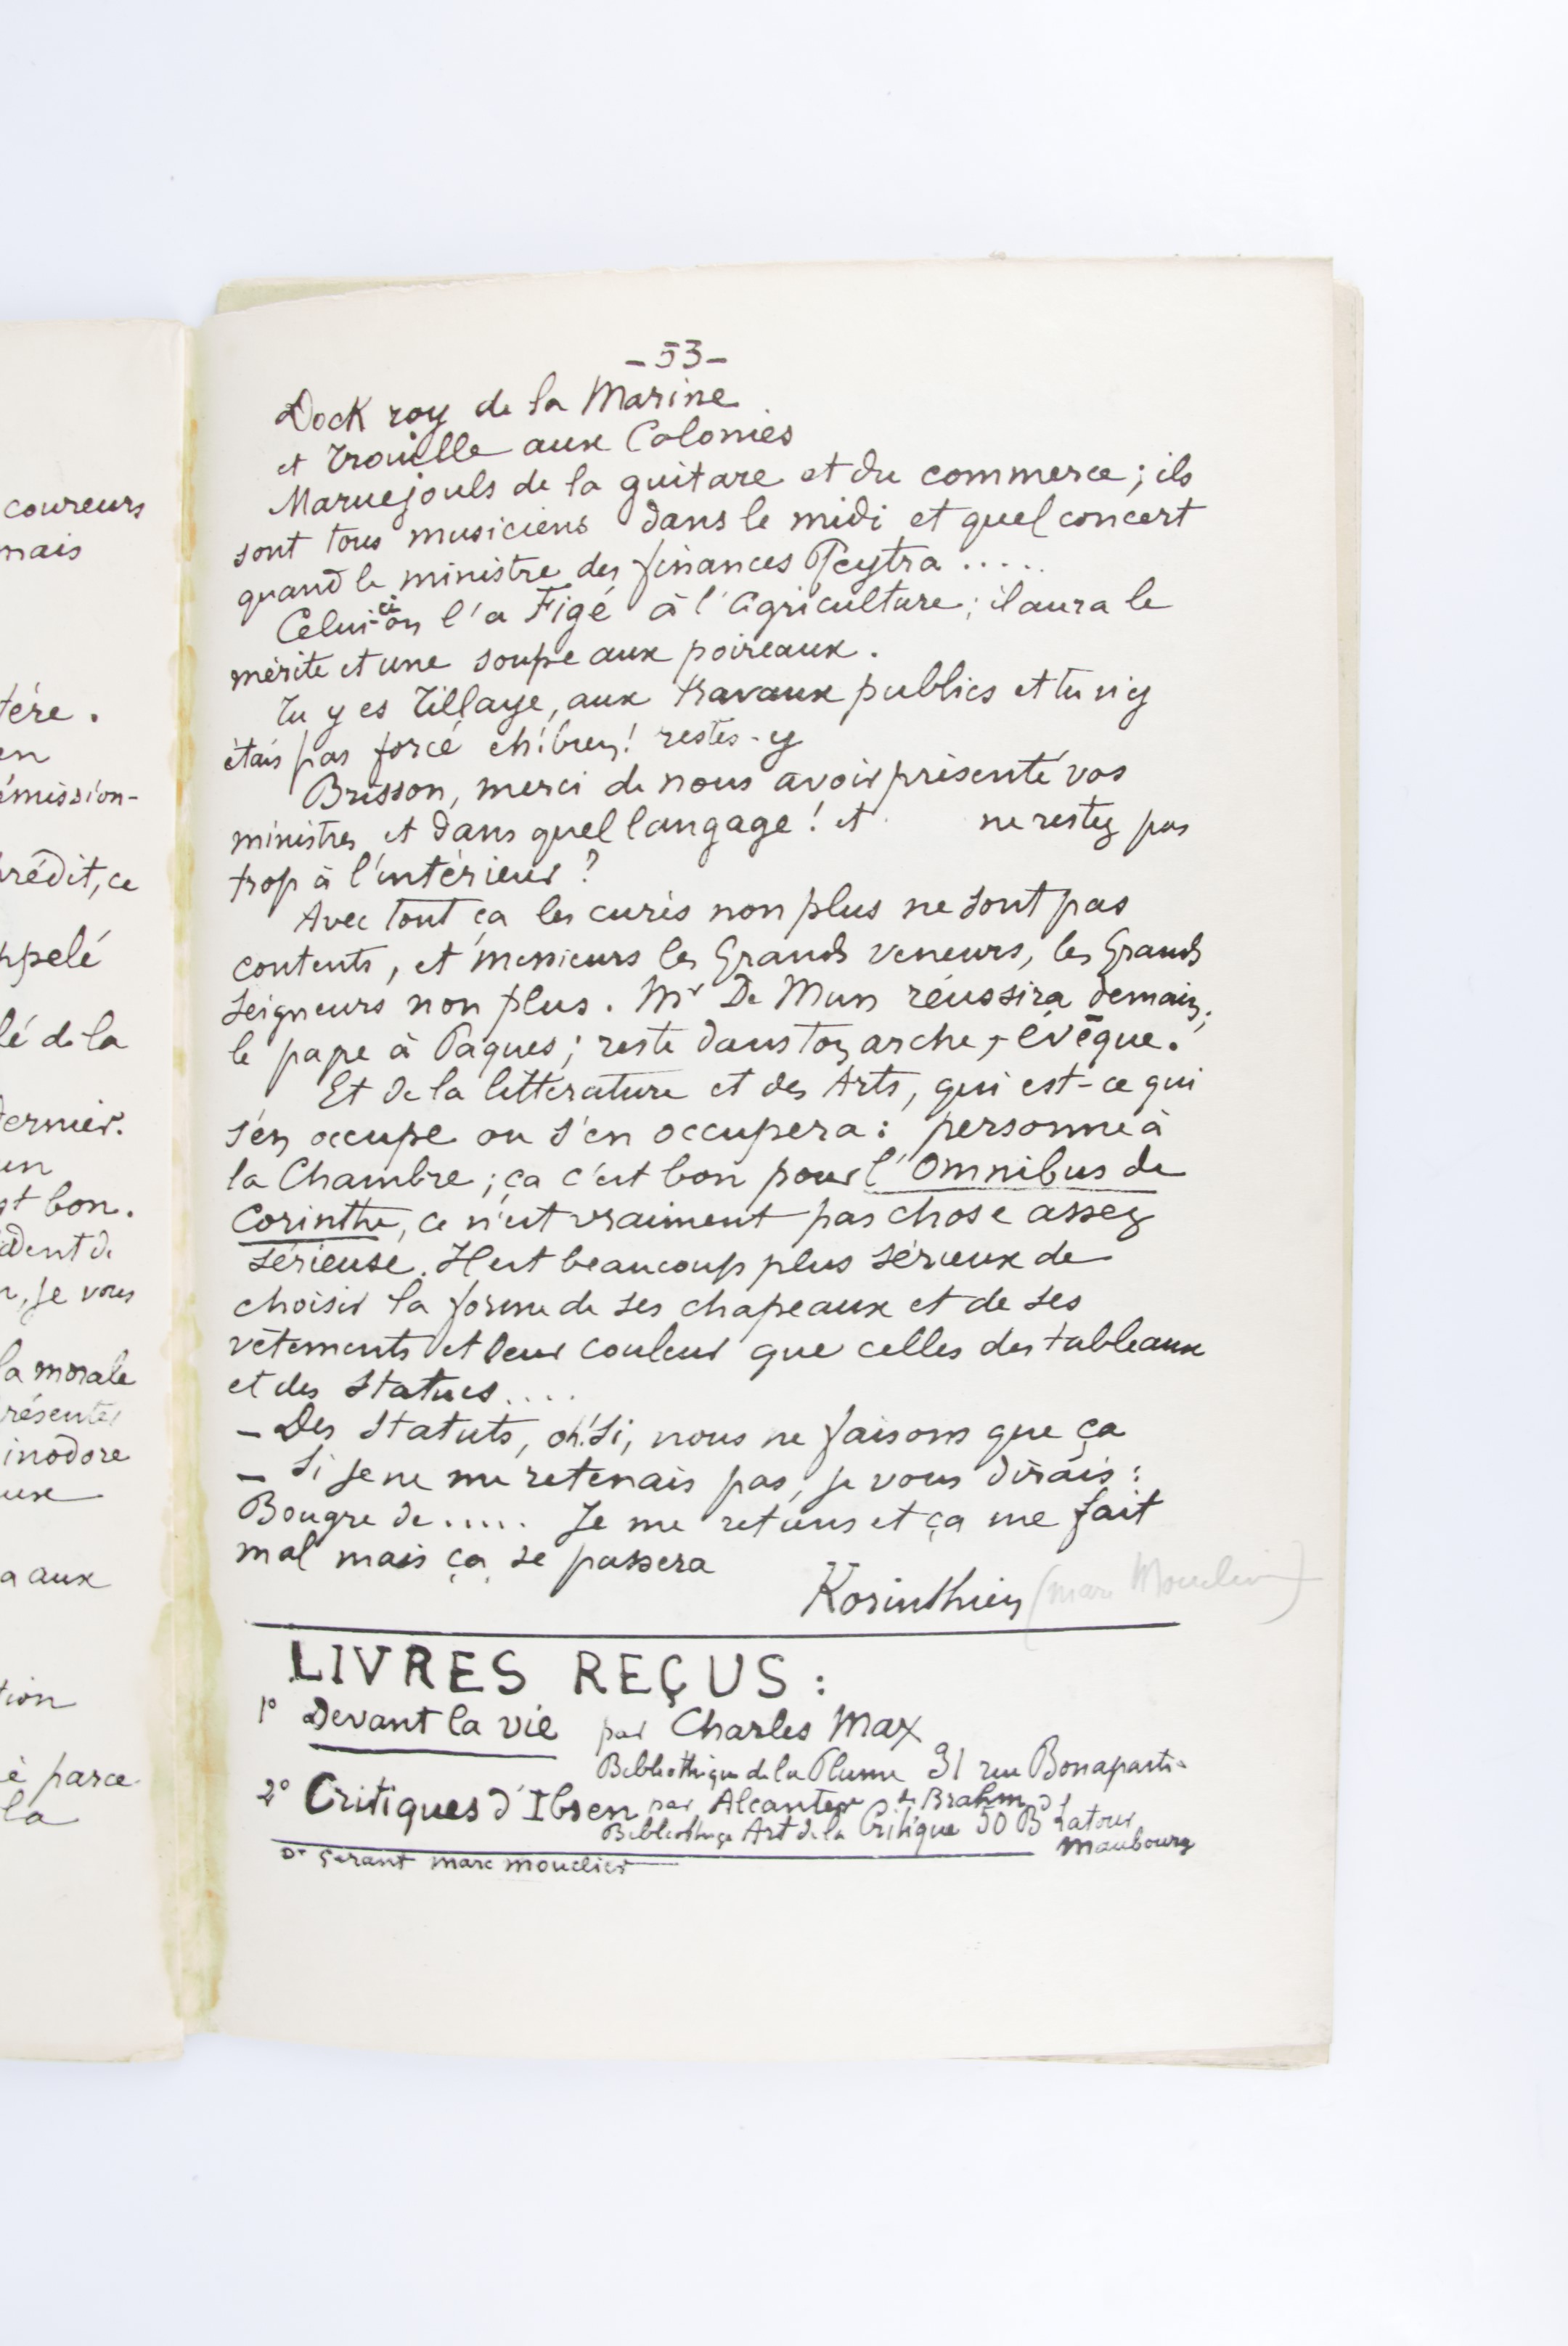 coureurs
mais
tére.
en
émission-
crédit, ce
appelé
lé de la
dernier.
un
st bon.
ident de
n, je vous
la morale
résenter
inodore
eux
a aux
tion
é parce
la
- 53 -
Dock roy de la Marine
et Trouille aux Colonies
Maruejouls de la guitare et du commerce; ils
sont tous musiciens dans le midi et quel concert
quand le ministre des finances Peytra .....
Celui-ci on l'a Figé à l'Agriculture; il aura le
mérite et une soupe aux poireaux.
Tu y es Tillaye, aux travaux publics et tu n'y
étais pas forcé eh! bien! restes-y
Brisson, merci de nous avoir présenté vos
ministres et dans quel langage! et ne restez pas
trop à l'intérieur?
Avec tout ça les curés non plus ne sont pas
contents, et messieurs les Grands veneurs, les Grands
seigneurs non plus. Mr De Mun réussira demain;
le pape à Pâques; reste dans ton arche, évêque.
Et de la littérature et des Arts, qui est-ce qui
s'en occupe ou s'en occupera: personne à
la Chambre; ça c'est bon pour l'Omnibus de
Corinthe, ce n'est vraiment pas chose assez
sérieuse. Il est beaucoup plus sérieux de
choisir la forme de ses chapeaux et de ses
vêtements et leur couleur que celles des tableaux
et des statues....
- Des statuts, oh! si, nous ne faisons que ça
- Si je ne me retenais pas, je vous dirais:
Bougre de ..... Je me retiens et ça me fait
mal mais ça se passera
Korinthien (Marc Mouclier)
LIVRES REÇUS:
1° Devant la vie par Charles Max
Bibliothèque de la Plume 31 rue Bonaparte
2° Critiques d'Ibsen par Alcanter de Brahm
Bibliothèque Art de la Critique 50 Bd Latour
Maubourg
Dr gérant marc mouclier